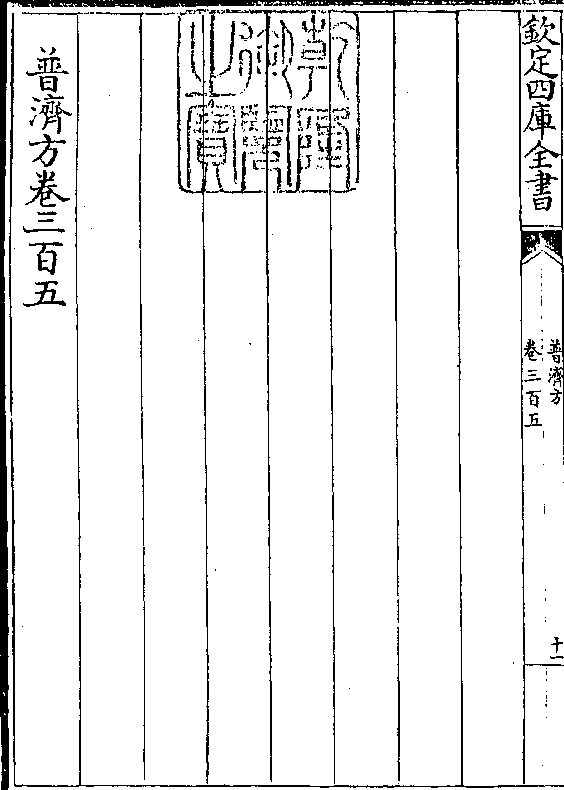 欽定四庫全書
普濟方
卷三百五
十一
乾隆御覽之寶
普濟方卷三百五